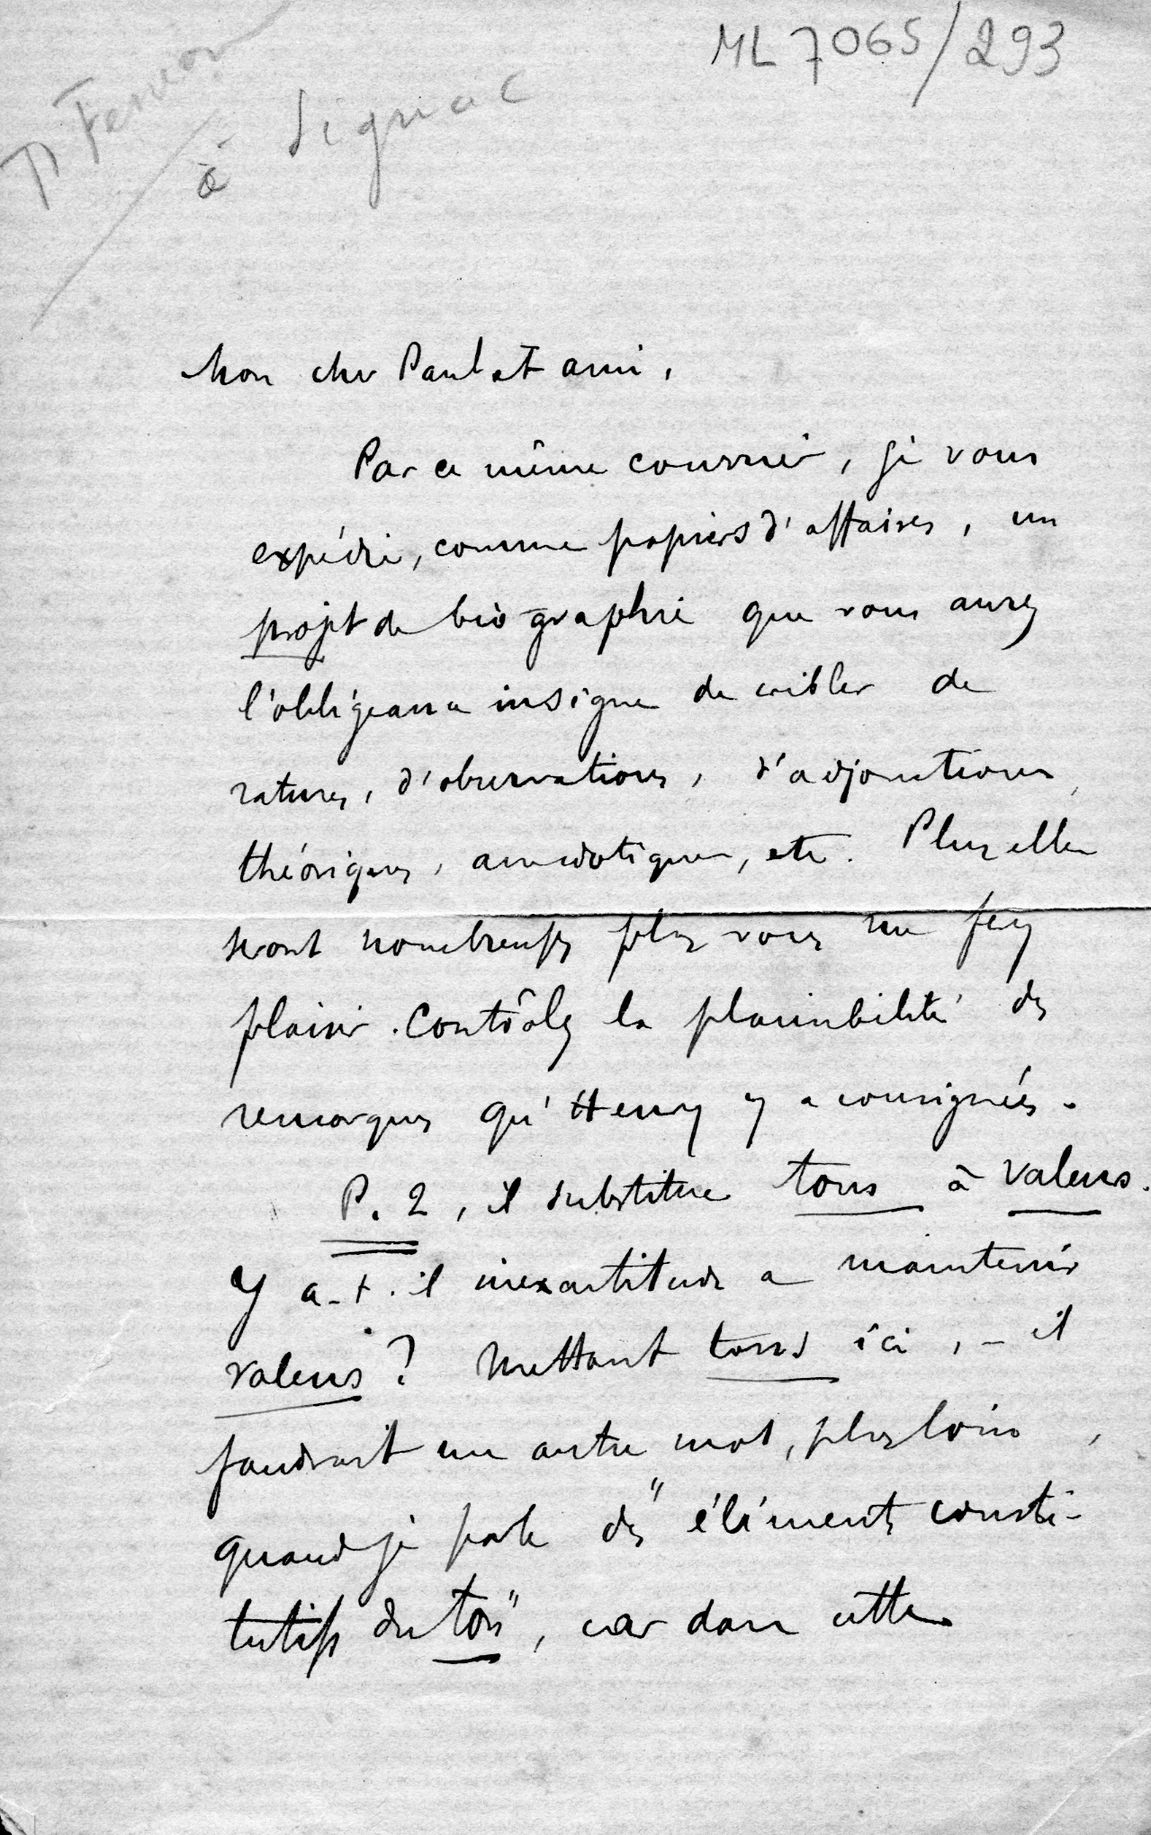 ML 7065/293
Feneon
à Signac
Mon cher Paul et ami,
Par ce même courrier, je vous
expédie, comme papiers d'affaires, un
projet de biographie que vous aurez
l'obligeance insigne de cribler de
ratures, d'observations, d'adjonctions
théoriques, anecdotiques, etc. Plus elles
seront nombreuses plus vous me ferez
plaisir. Contrôlez la plausibilité des
remarques qu'Henry y a consignées.
P. 2, il substitue tons à valeurs.
Y a-t-il inexactitude a maintenir
valeurs ? Mettant tons ici, – il
faudrait un autre mot, plus loin,
quand je parle des "éléments consti-
tutifs du ton", car dans cette